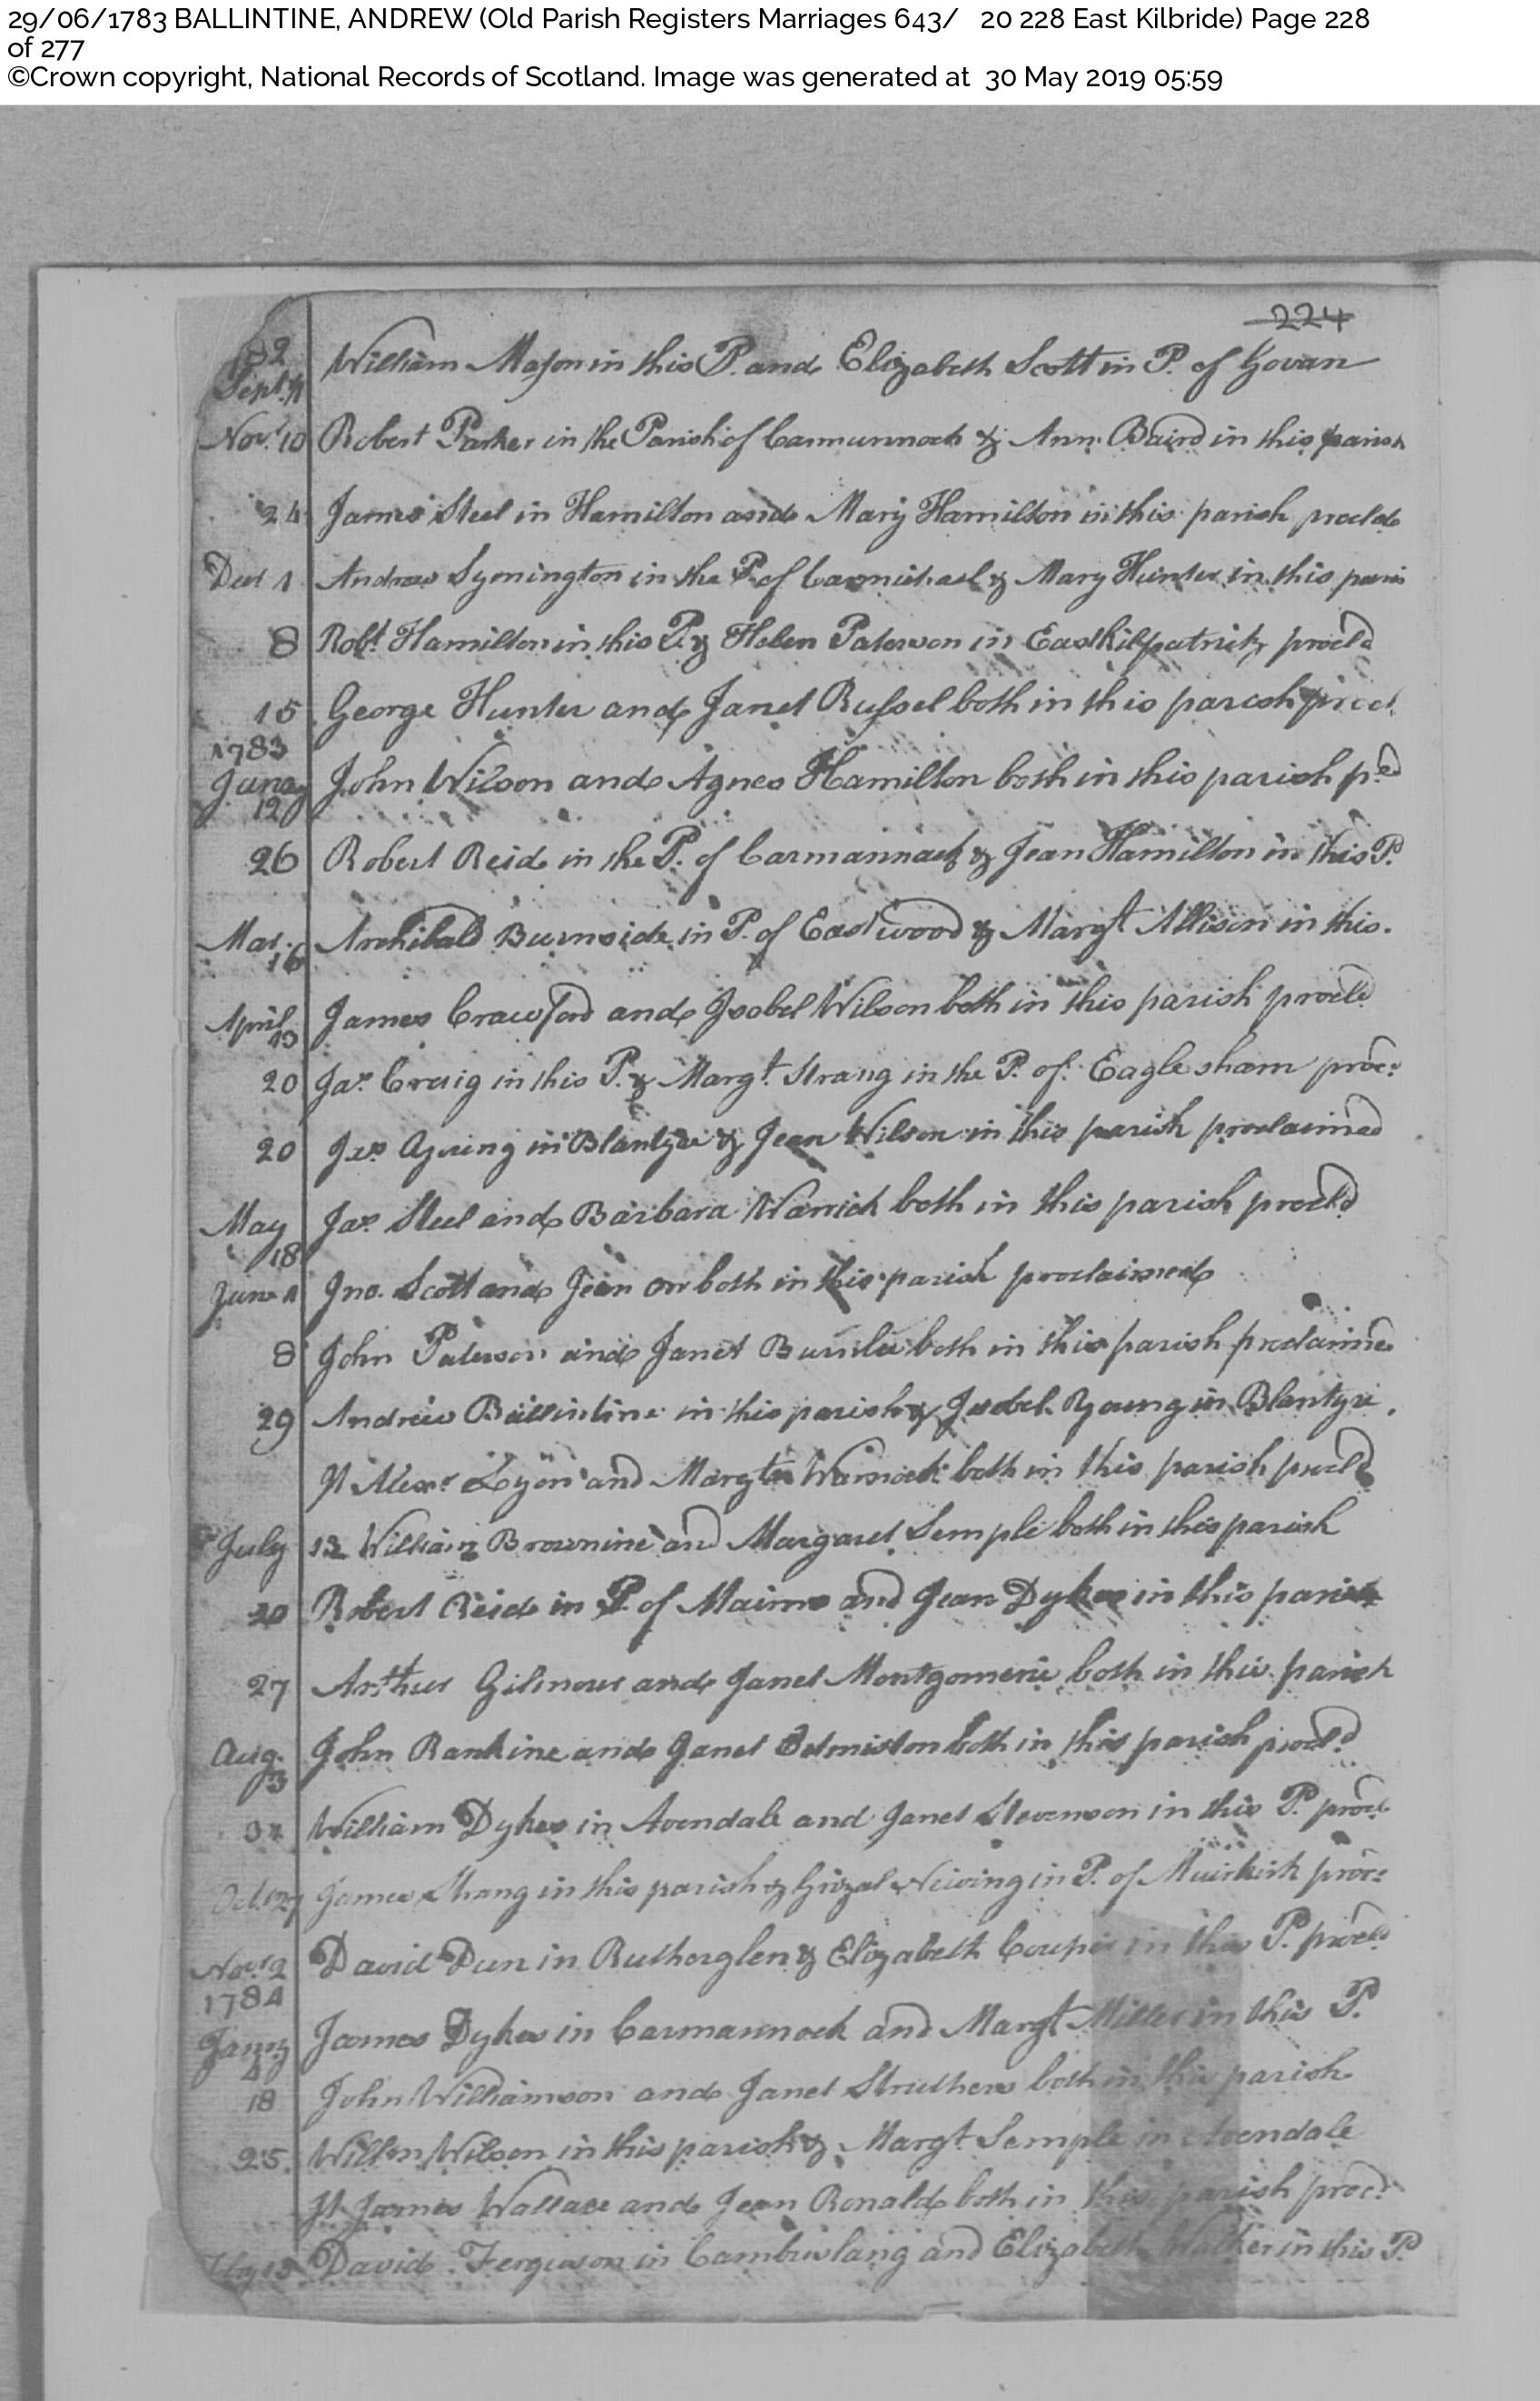 29/06/1783 BALLINTINE, ANDREW (Old Parish Registers Marriages 643/ 20 228 East Kilbride) Page 228
of 277
©Crown copyright, National Records of Scotland. Image was generated at 30 May 2019 05:59
224
82
Sept. William Mason in this P. and Elizabeth Scott in P. of Govan
Novr. 10 Robert Parker in the Parish of Carmunnock & Ann Baird in this parish
24 James Steel in Hamilton and Mary Hamilton in this parish procld
Decr 1 Andrew Symington in the P. of Carmichael & Mary Hunter in this paris
8 Robt. Hamilton in this P. & Helen Paterson in Eastkilpatrick procld
15 George Hunter and Janet Russel both in this parish procl
1783
Janay 12 John Wilson and Agnes Hamilton both in this parish pd
26 Robert Reid in the P. of Carmannack & Jean Hamilton in this P.
Mar. 16 Archibald Burnside in P. of Eastwood & Margt Allison in this.
April 13 James Crawford and Isobel Wilson both in this parish procld
20 Jas Craig in this P. & Margt. Strang in the P. of Eaglesham proc:
20 Jas in Blantyre & Jean Wilson in this parish proclaimed
May 18 Jas Steel and Barbara Warrick both in this parish procld
June 1 Jno. Scott and Jean Orr both in this parish proclaimed
8 John Paterson and Janet both in this parish proclaimed
29 Andrew Ballintine in this parish & Isobel Young in Blantyre.
Alexr Lyon and Margt Warnock both in this parish procld
July 13 William Brownine and Margaret Semple both in this parish
20 Robert Reid in P. of Mairns and Jean Dykes in this parish
27 Arthur Gilmour and Janet Montgomerie both in this parish
Aug. 3 John Rankine and Janet Edmiston both in this parish procld
William Dykes in Avendale and Janet Stevenson in this P. procl
Oct. 27 James Strang in this parish & Grizal in P. of Muirkirk proc:
Novr 2 David Dun in Rutherglen & Elizabeth Couper in this P. procld
1784
Janry 4 James Dykes in Carmannock and Margt Miller in this P.
18 John Williamson and Janet Struthers both in this parish
25 Willm Wilson in this parish & Margt Semple in Avendale
James Wallace and Jean Ronald both in this parish procd
David Ferguson in Cambuslang and Elizabeth Walker in this P.